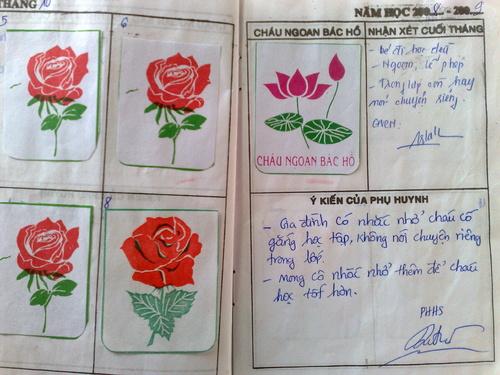 THÁNG 10
5
6
8
NĂM HỌC 2008 - 2009
CHÁU NGOAN BÁC HỒ
NHẬN XÉT CUỐI THÁNG
- Bé đi học đều
- Ngoan, lễ phép
- Trong lớp còn hay
nói chuyện riêng.
GVCN:
CHÁU NGOAN BÁC HỒ
Ý KIẾN CỦA PHỤ HUYNH
- Gia đình có nhắc nhở cháu cố
gắng học tập, không nói chuyện riêng
trong lớp.
- Mong cô nhắc nhở thêm để cháu
học tốt hơn.
PHHS